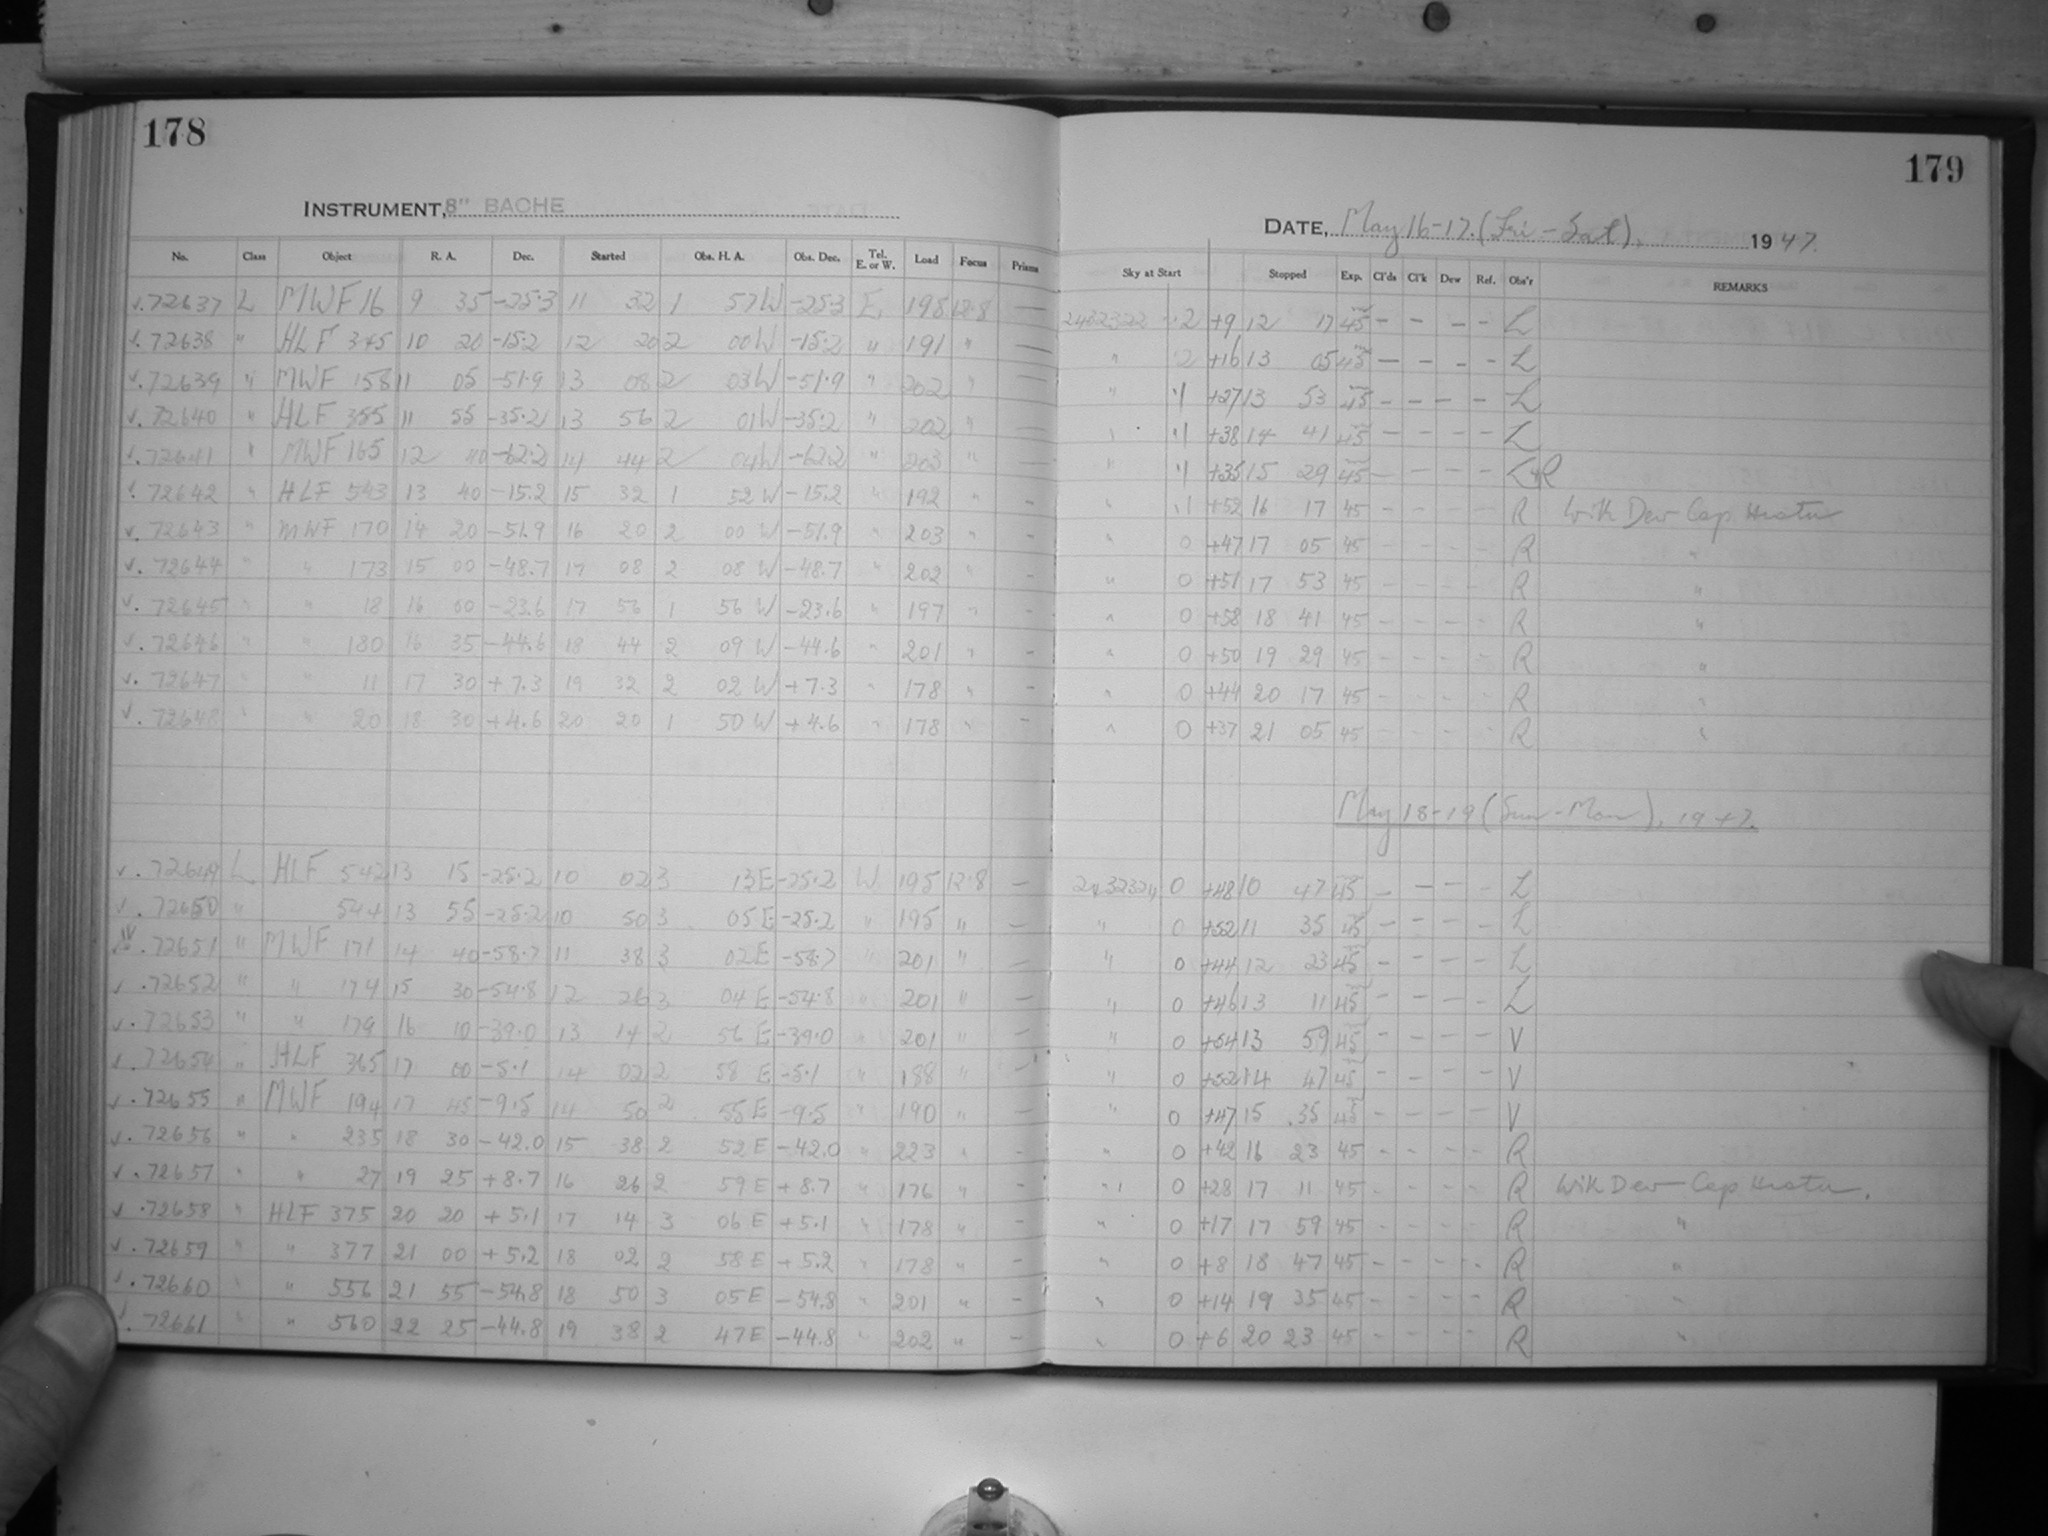 178
INSTRUMENT, 8" BACHE
No. Class Object R. A. Dec. Started Obs. H. A. Obs. Dec. Tel. E. or W. Load Focus Prisms
√. 72637 L MWF 16 9 35 -25.3 11 32 1 57 W -25.3 E. 195 12.8 —
√. 72638 " HLF 345 10 20 -15.2 12 20 2 00 W -15.2 " 191 " —
√. 72639 " MWF 158 11 05 -51.9 13 08 2 03 W -51.9 " 202 " —
√. 72640 " HLF 355 11 55 -35.2 13 56 2 01 W -35.2 " 202 " —
√. 72641 " MWF 165 12 40 -62.2 14 44 2 04 W -62.2 " 203 " —
√. 72642 " HLF 543 13 40 -15.2 15 32 1 52 W -15.2 " 192 " -
√. 72643 " MWF 170 14 20 -51.9 16 20 2 00 W -51.9 " 203 " -
√. 72644 " " 173 15 00 -48.7 17 08 2 08 W -48.7 " 202 " -
√. 72645 " " 18 16 00 -23.6 17 56 1 56 W -23.6 " 197 " -
√. 72646 " " 180 16 35 -44.6 18 44 2 09 W -44.6 " 201 " -
√. 72647 " " 11 17 30 +7.3 19 32 2 02 W +7.3 " 178 " -
√. 72648 " " 20 18 30 +4.6 20 20 1 50 W +4.6 " 178 " -
√. 72649 L. HLF 542 13 15 -25.2 10 02 3 13 E -25.2 W 195 12.8 —
√. 72650 " 544 13 55 -25.2 10 50 3 05 E -25.2 " 195 " —
. 72651 " MWF 171 14 40 -58.7 11 38 3 02 E -58.7 " 201 " —
√. 72652 " " 174 15 30 -54.8 12 26 3 04 E -54.8 " 201 " —
√. 72653 " " 179 16 10 -39.0 13 14 2 56 E -39.0 " 201 " —
√. 72654 " HLF 365 17 00 -5.1 14 02 2 58 E -5.1 " 188 " —
√. 72655 " MWF 194 17 45 -9.5 14 50 2 55 E -9.5 " 190 " —
√. 72656 " " 235 18 30 -42.0 15 38 2 52 E -42.0 " 223 " -
√. 72657 " " 27 19 25 +8.7 16 26 2 59 E +8.7 " 176 " -
√. 72658 " HLF 375 20 20 +5.1 17 14 3 06 E +5.1 " 178 " -
√. 72659 " " 377 21 00 +5.2 18 02 2 58 E +5.2 " 178 " -
√. 72660 " " 556 21 55 -54.8 18 50 3 05 E -54.8 " 201 " -
√. 72661 " " 560 22 25 -44.8 19 38 2 47 E -44.8 " 202 " -
179
DATE, May 16-17. (Fri - Sat), 1947.
Sky at Start Stopped Exp. Cl'ds Cl'k Dew Ref. Obs'r REMARKS
2432322 2 +9 12 17 45 — — — — L
" 2 +16 13 05 45 — — — — L
" 1 +27 13 53 45 — — — — L
" 1 +38 14 41 45 — — — — L
" 1 +35 15 29 45 — — — — L+R
" 1 +52 16 17 45 - - - - R With Dew Cap Heater
" 0 +47 17 05 45 - - - - R "
" 0 +51 17 53 45 - - - - R "
" 0 +58 18 41 45 - - - - R "
" 0 +50 19 29 45 - - - - R "
" 0 +44 20 17 45 - - - - R "
" 0 +37 21 05 45 - - - - R "
May 18-19 (Sun - Mon), 1947.
2432324 0 +48 10 47 45 — — — — L
" 0 +52 11 35 45 — — — — L
" 0 +44 12 23 45 — — — — L
" 0 +46 13 11 45 — — — — L
" 0 +54 13 59 45 — — — — V
" 0 +52 14 47 45 — — — — V
" 0 +47 15 35 45 — — — — V
" 0 +42 16 23 45 - - - - R
" 0 +28 17 11 45 - - - - R With Dew-Cap Heater.
" 0 +17 17 59 45 - - - - R "
" 0 +8 18 47 45 - - - - R "
" 0 +14 19 35 45 - - - - R "
" 0 +6 20 23 45 - - - - R "